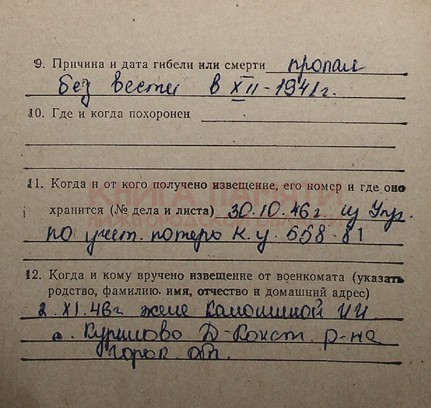 9. Причина и дата гибели или смерти пропал
без вести в XII-1941г.
10. Где и когда похоронен
11. Когда и от кого получено извещение, его номер и где оно
хранится (№ дела и листа) 30.10.46г. из Упр.
по учет. потерь к.у. 658-81
12. Когда и кому вручено извещение от военкомата (указать
родство, фамилию, имя, отчество и домашний адрес)
2.XI.46г жене
Д-Конст. р-на